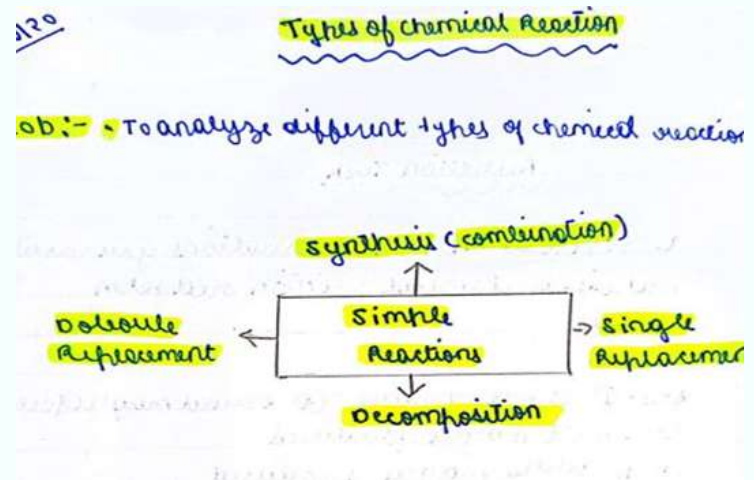 Types of chemical Reaction
ob:- • To analyze different types of chemical reaction
Synthesis (combination)
Double
Replacement
Simple
Reactions
Single
Replacemen
Decomposition